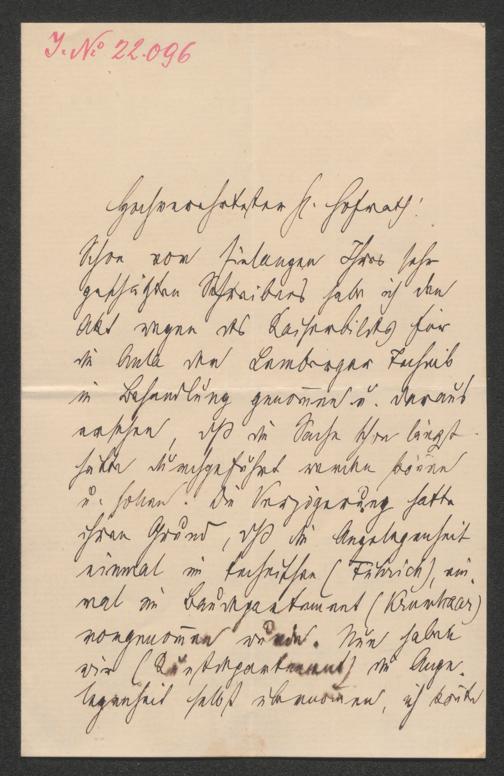 J. No 22.096
Hochverehrtester H. Hofrath!
Schon vor Einlangen Ihres sehr
geschätzten Schreibens habe ich den
Akt wegen des Kaiserbildes für
die Aula der Lemberger Technik
in Behandlung genommen u. daraus
ersehen, daß die Sache schon längst
hätte durchgeführt werden können
u. sollen. Die Verzögerung hatte
ihren Grund, daß die Angelegenheit
einmal im technischen (Führich), ein
mal im Baudepartement (Kruhaar)
vorgenommen wurde. Nun haben
wir (Kunstdepartement) die Ange-
legenheit selbst übernommen, ich konnte